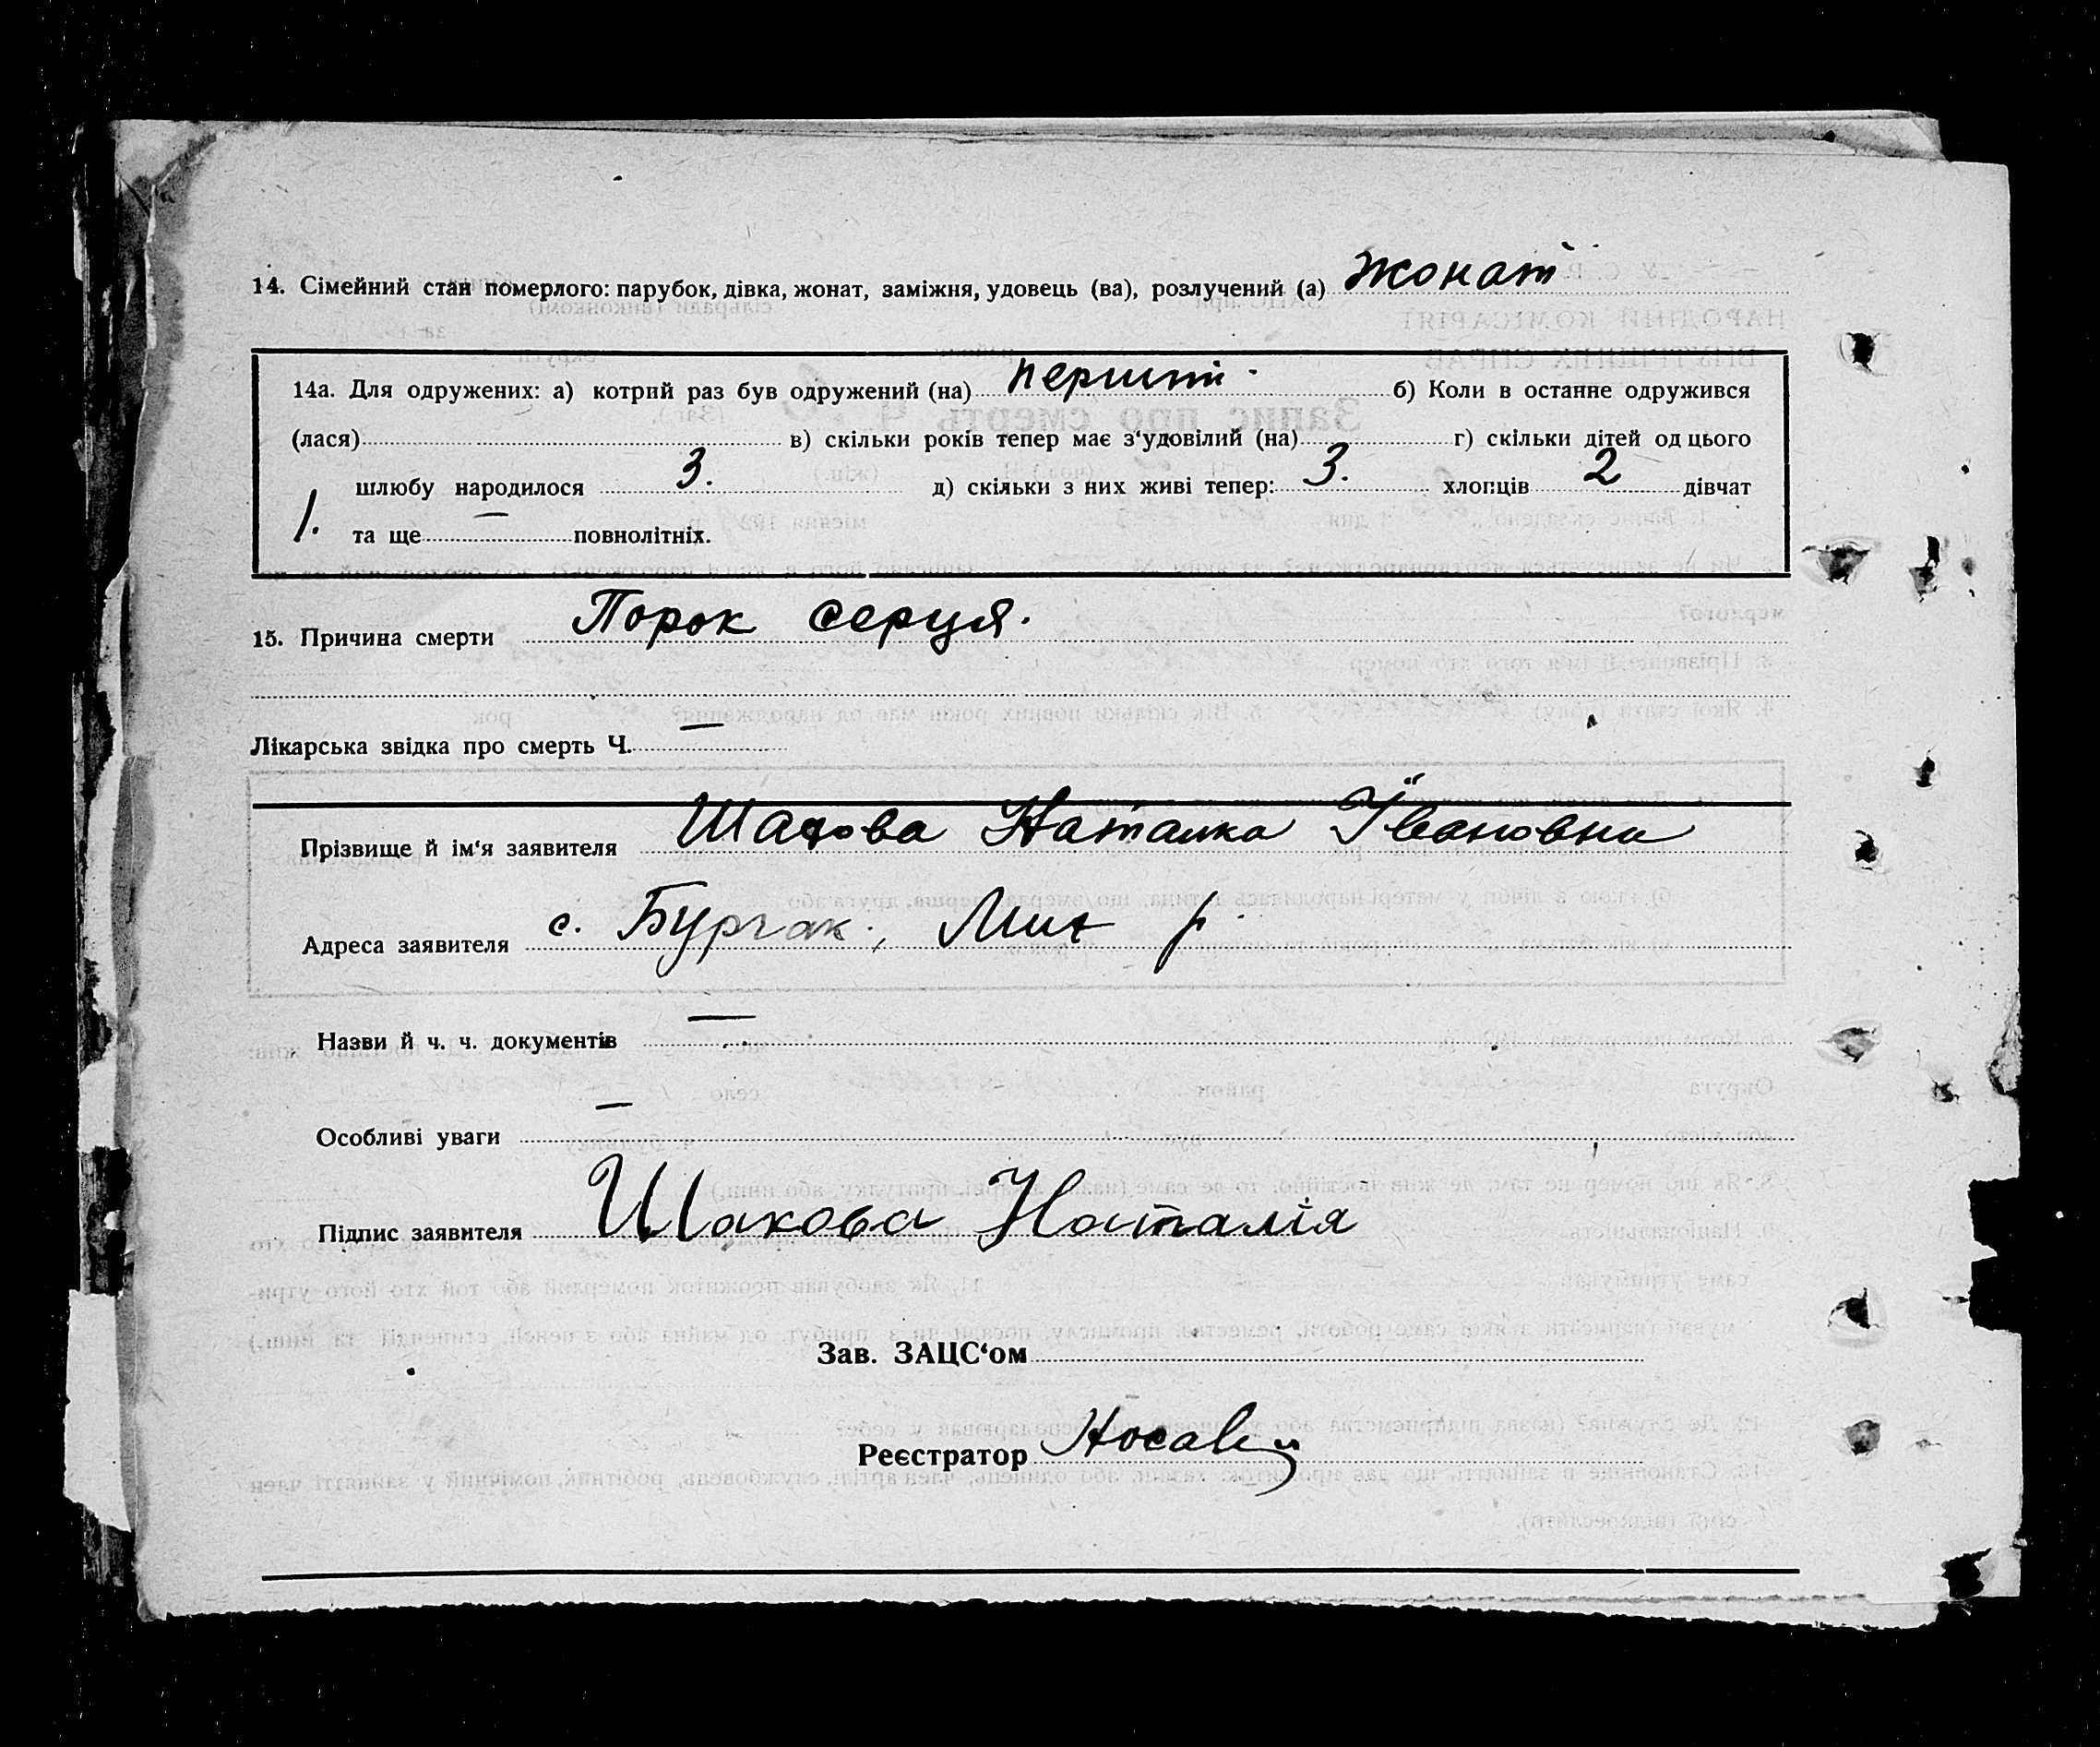 14. Сімейний стан померлого: парубок, дівка, жонат, заміжня, удовець (ва), розлучений (а) жонат
14а. Для одружених: а) котрий раз був одружений (на) перший б) Коли в останнє одружився
(лася) в) скільки років тепер має з‘удовілий (на) г) скільки дітей од цього
шлюбу народилося 3. д) скільки з них живі тепер: 3. хлопців 2 дівчат
1. та ще — повнолітніх.
15. Причина смерти Порок серця.
Лікарська звідка про смерть Ч. —
Прізвище й ім‘я заявителя Шакова Наталка Івановна
Адреса заявителя с. Бурчак, р.
Назви й ч. ч. документів —
Особливі уваги —
Підпис заявителя Шакова Наталія
Зав. ЗАЦС‘ом
Реєстратор